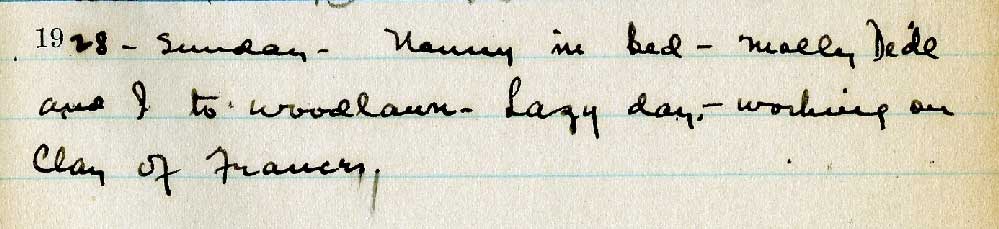 1928 - Sunday - Nanny in bed - Molly Dell
and I to Woodlawn - Lazy day, - working on
Clay of Francis,